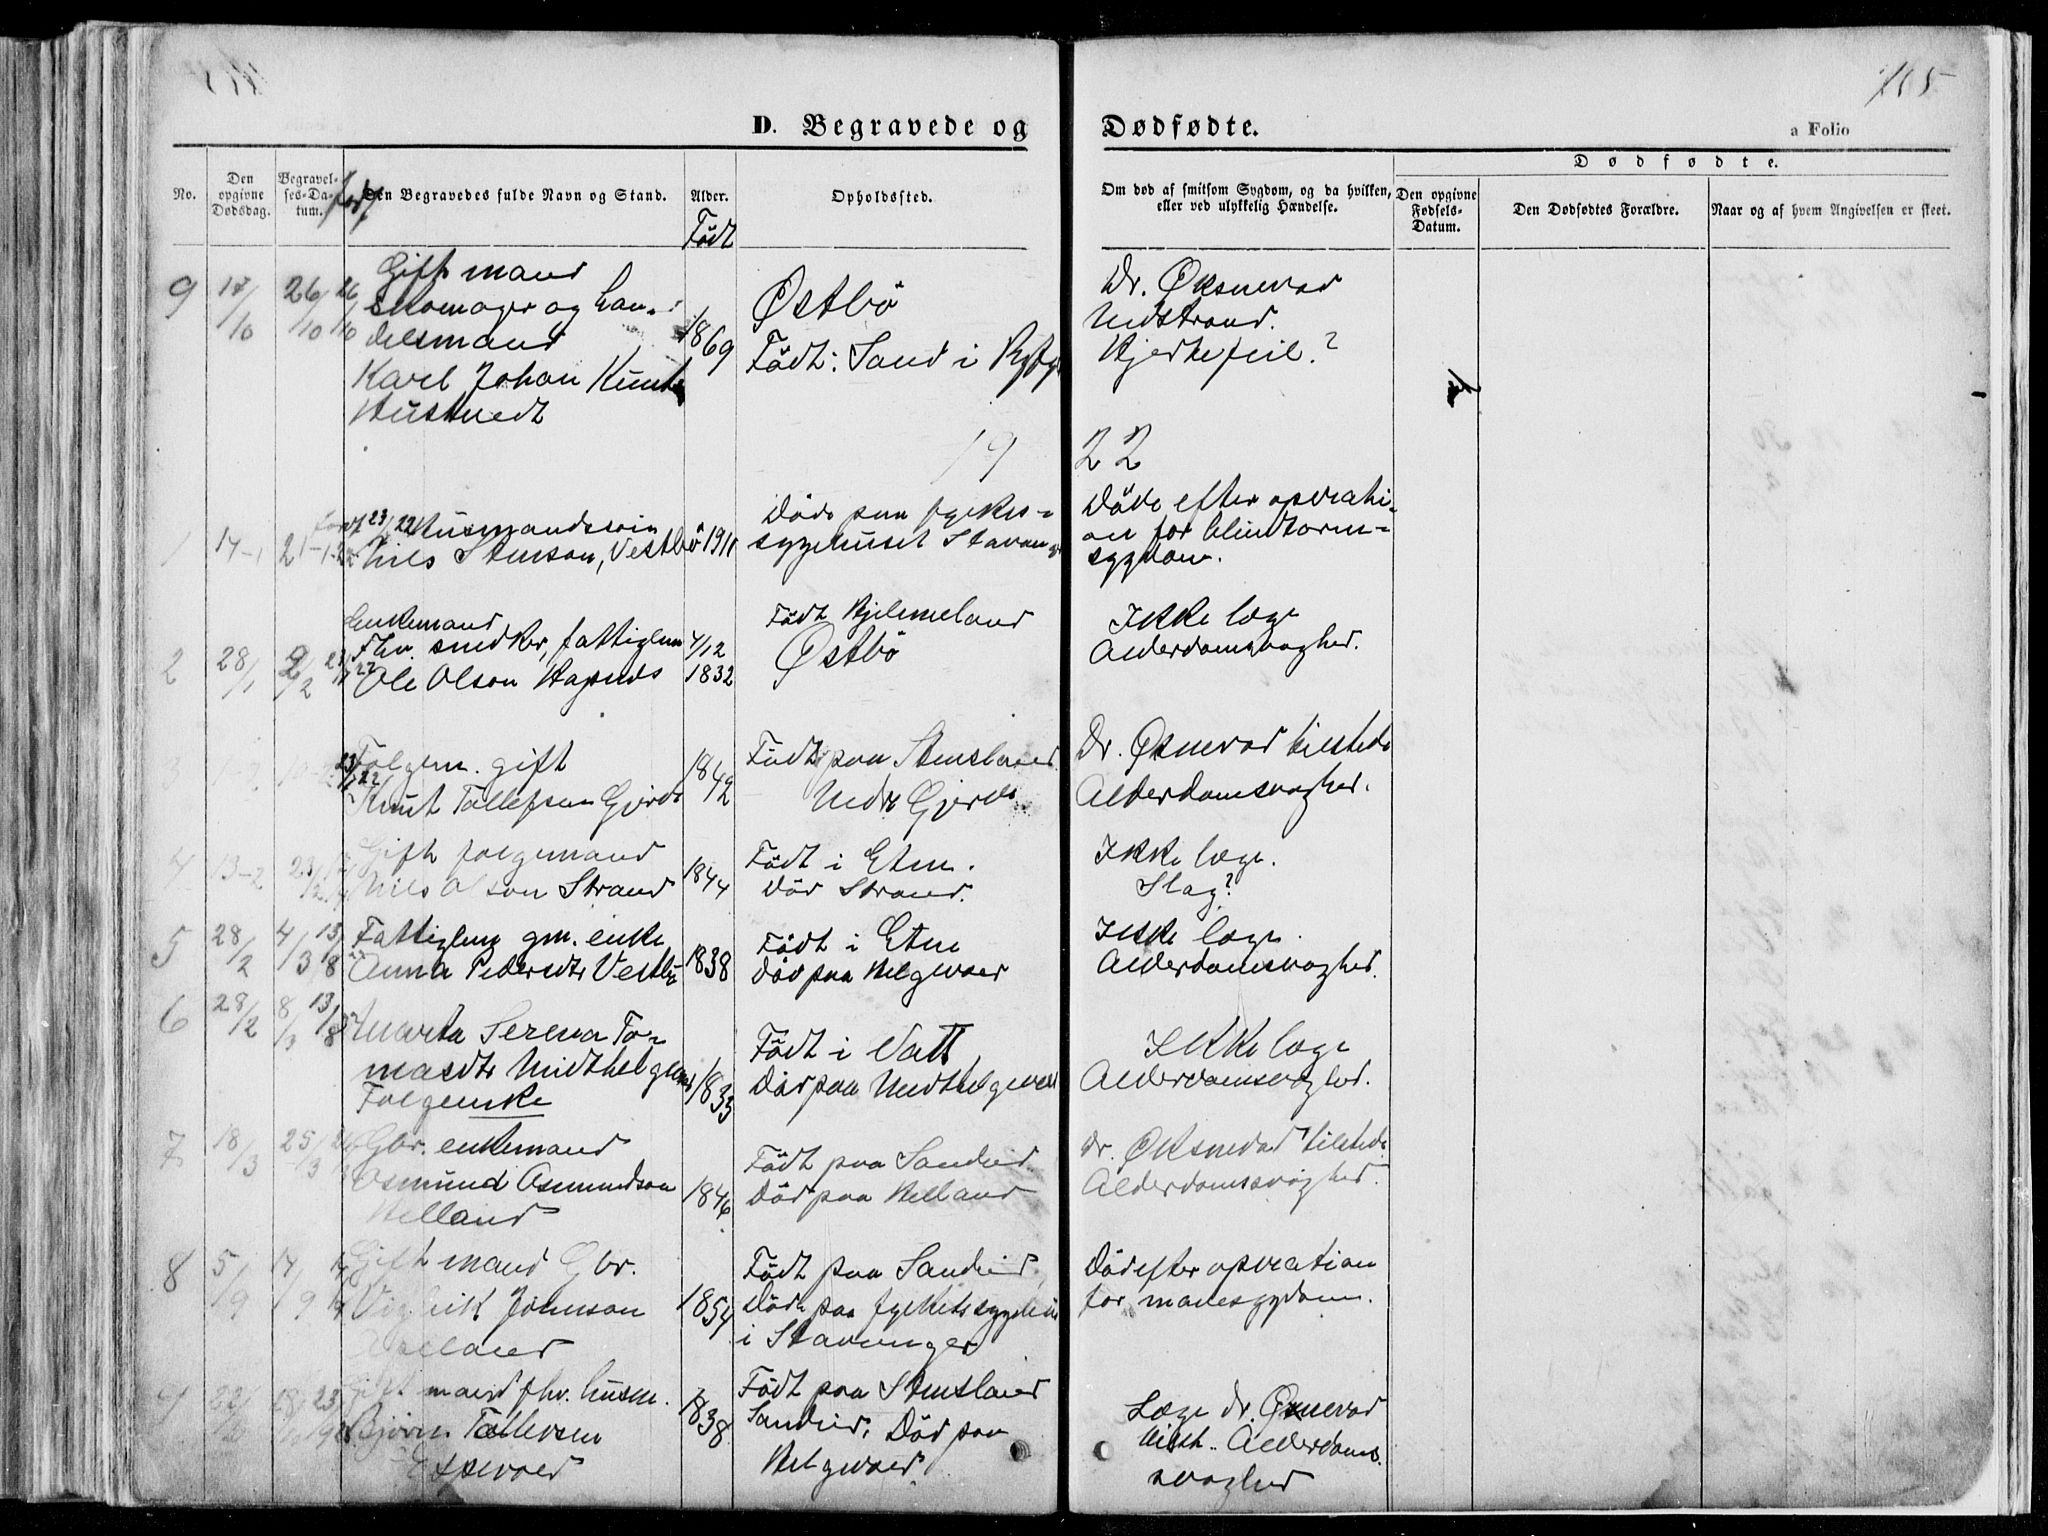 115
D. Begravede og Dødfødte.
a Folio
No.
Den opgivne Dødsdag.
Begravelses-Datum.
Den Begravedes fulde Navn og Stand.
Alder.
Født
Opholdssted.
Om død af smitsom Sygdom, og da hvilken, eller ved ulykkelig Hændelse.
Dødfødte.
Den opgivne Fødsels-Datum.
Den Dødfødtes Forældre.
Naar og af hvem Angivelsen er skeet.
9 17/10 26/10 26/10
Gift mand
skomager og han-
delsmand
Karl Johan Knuts
Hustvedt
1869
Østbö
Födt: Sand i Ryfylke
Dr. Øksnevad
Nedstrand.
Hjertefeil?
19 22
1 14-1 21-1 23/22
Husmandssön
Nils Stenson, Vestbö 1911
Döde paa fylkes-
sygehuset Stavanger
Döde efter operati-
on for blindtarm-
sygdom.
2 28/1 9/2
Enkemand
Fhv. snedker, fattiglem
Ole Olson
4/12
1832
Födt Hjelmeland
Østbö
Ikke læge
Alderdomssvaghed.
3
Folgem. gift
Knut Tollefsen Gjerde
1842
Födt paa Stensland
Nedre Gjerde
Dr. Øksnevad tilstede
Alderdomssvaghed.
4 13-2 23/2
Gift folgemand
Nils Olson Strand
1844
Födt i Etne.
Död Strand.
Ikke læge.
Slag?
5 28/2 4/3 13/8
Fattiglem gm. enke
Anna Pedersdtr Vestbö
1838
Födt i Etne
Död paa Helgevoer
Ikke læge.
Alderdomssvaghed.
6 28/2 8/3 13/8
Marta Serena To-
masdtr Midthelgevoer
Folgeenke
1833
Födt i Vats
Död paa Midthelgevoer
Ikke læge
Alderdomssvaghed.
7 18/3 25/3
Gbr. enkemand
Osmund Osmundson
Helland
1846
Födt paa Sandeid.
Död paa Helland
Dr. Øksnevad tilstede
Alderdomssvaghed.
8 5/9 14/9
Gift mand Gbr.
Vigleik Johnson
1854
Födt paa Sandeid,
Döde paa fylkets sygehus
i Stavanger
Död efter operation
for mavesygdom.
9 22/12
Gift mand fhv. husm.
Björn Tollevsen
Espevoer
1838
Födt paa Stensland
Sandeid; Död paa
Helgevoer
Læge dr. Øksnevad
tilst. Alderdoms-
svaghed